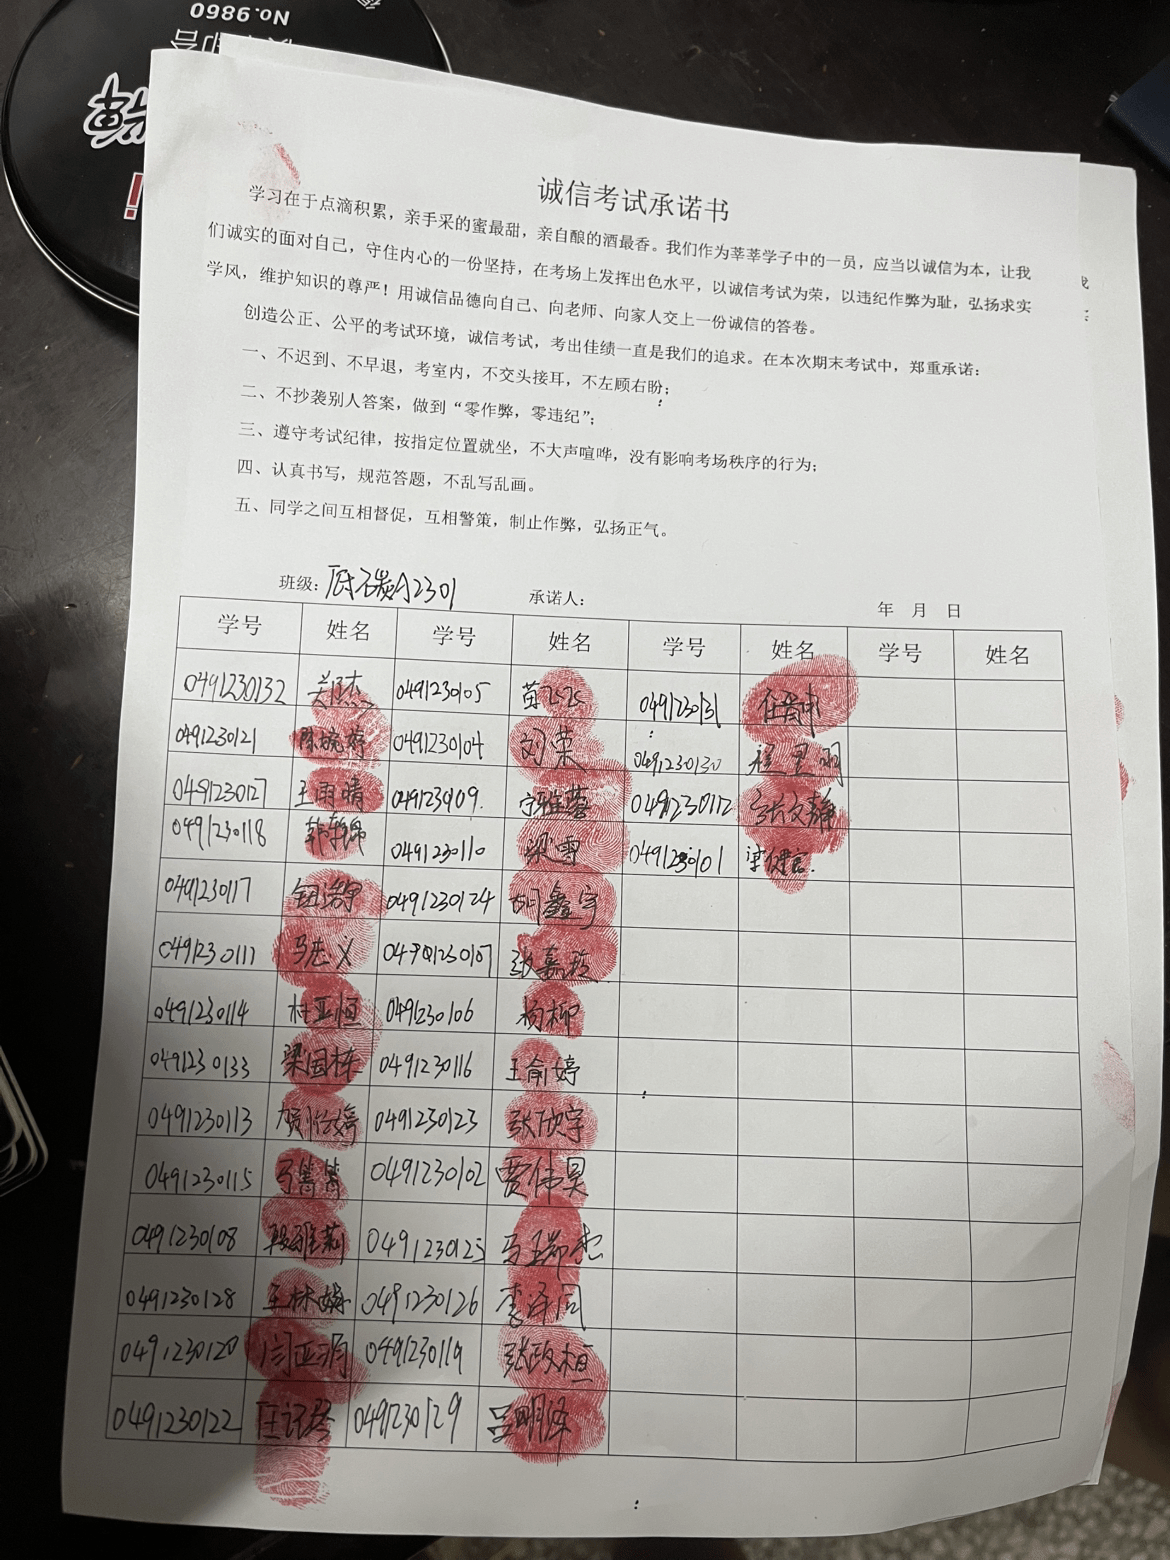 No.9860
诚信考试承诺书
学习在于点滴积累，亲手采的蜜最甜，亲自酿的酒最香。我们作为莘莘学子中的一员，应当以诚信为本，让我
们诚实的面对自己，守住内心的一份坚持，在考场上发挥出色水平，以诚信考试为荣，以违纪作弊为耻，弘扬求实
学风，维护知识的尊严！用诚信品德向自己、向老师、向家人交上一份诚信的答卷。
创造公正、公平的考试环境，诚信考试，考出佳绩一直是我们的追求。在本次期末考试中，郑重承诺：
一、不迟到、不早退，考室内，不交头接耳，不左顾右盼；
二、不抄袭别人答案，做到“零作弊，零违纪”；
三、遵守考试纪律，按指定位置就坐，不大声喧哗，没有影响考场秩序的行为；
四、认真书写，规范答题，不乱写乱画。
五、同学之间互相督促，互相警策，制止作弊，弘扬正气。
班级：低碳A2301 承诺人： 年 月 日
学号 姓名 学号 姓名 学号 姓名 学号 姓名
0491230132 0491230105 苗 0491230131
0491230121 陈婉婷 0491230104 刘荣 0491230130 程星羽
0491230127 王雨晴 049123909. 0491230112 张文静
0491230118 0491230110 梁雪 0491230101 梁健宏
0491230117 0491230124 胡鑫宇
0491230111 马志义 0491230107 张嘉
0491230114 杜亚恒 0491230106 杨柳
0491230133 梁国栋 0491230116 王俞婷
0491230113 贺怡婷 0491230123 张欣宇
0491230115 弓箐箐 0491230102 贾伟昊
0491230108 段雅莉 0491230125 马瑞杰
0491230128 王林 0491230126 李泽同
0491230120 闫亚玥 0491230119 张政桓
0491230122 0491230129 吕明泽